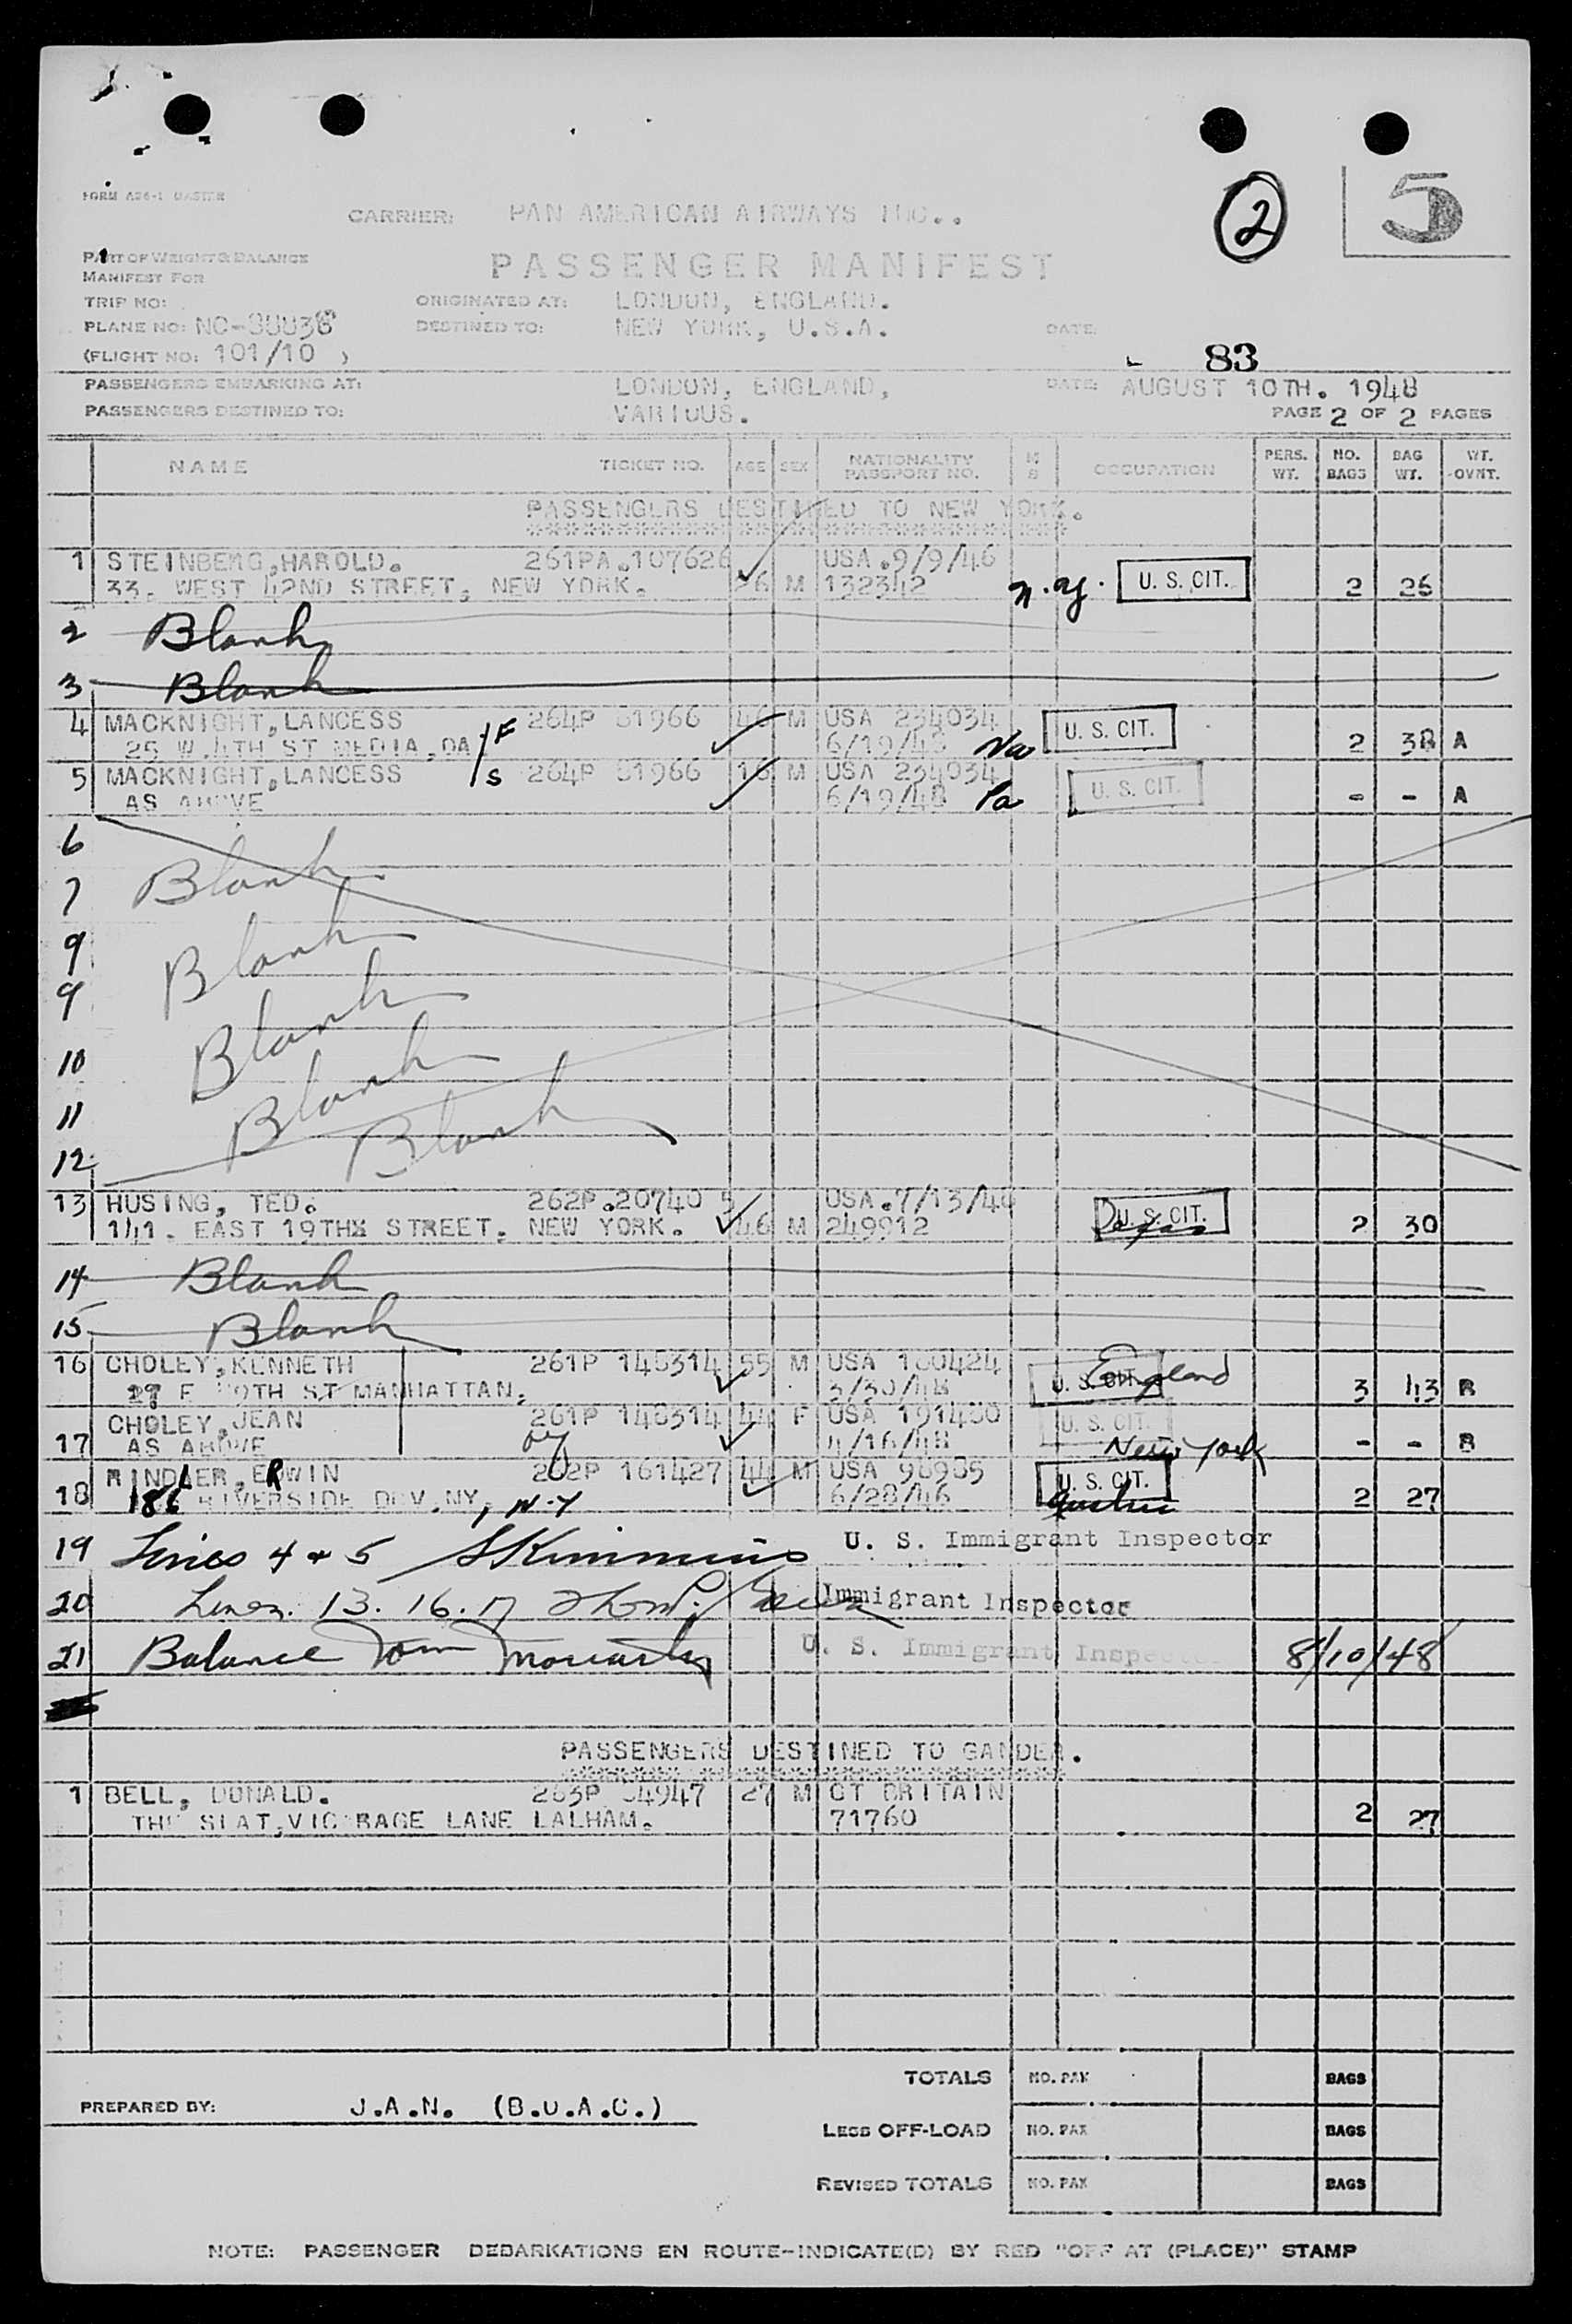 FORM A26-1 MASTER
CARRIER: PAN AMERICAN AIRWAYS INC..
2
5
PART OF WEIGHT & BALANCE
MANIFEST FOR
PASSENGER MANIFEST
TRIP NO:
ORIGINATED AT: LONDON, ENGLAND.
PLANE NO: NC-88838
DESTINED TO: NEW YORK, U.S.A.
DATE:
(FLIGHT NO: 101/10 )
83
PASSENGERS EMBARKING AT: LONDON, ENGLAND,
DATE: AUGUST 10TH. 1948
PASSENGERS DESTINED TO: VARIOUS.
PAGE 2 OF 2 PAGES
NAME TICKET NO. AGE SEX NATIONALITY PASSPORT NO. M S OCCUPATION PERS. WT. NO. BAGS BAG WT. WT. OVNT.
PASSENGERS DESTINED TO NEW YORK.
1 STEINBERG,HAROLD. 261PA.107626 USA.9/9/46
33. WEST 42ND STREET, NEW YORK. 26 M 132342 N.Y. U. S. CIT. 2 26
2 Blank
3 Blank
4 MACKNIGHT,LANCESS F 264P 81966 46 M USA 234034 U. S. CIT.
25 W.4TH ST MEDIA,PA 6/19/48 2 38 A
5 MACKNIGHT,LANCESS S 264P 81966 16 M USA 234034 U. S. CIT.
AS ABOVE 6/19/48 Pa - - A
6
7 Blank
9 Blank
9 Blank
10 Blank
11 Blank
12
13 HUSING, TED. 262P.20740 5 USA.7/13/48
141. EAST 19THX STREET, NEW YORK. 46 M 249912 U. S. CIT. 2 30
14 Blank
15 Blank
16 CHOLEY,KENNETH 261P 148314 55 M USA 180424 U. S. CIT. England
27 E 79TH ST MANHATTAN, 3/30/48 3 43 B
CHOLEY,JEAN 261P 148314 44 F USA 191480 U. S. CIT.
17 AS ABOVE 4/16/48 New York - - B
RINDLER, ERWIN 262P 161427 44 M USA 98985 U. S. CIT.
18 186 RIVERSIDE DRV.NY, N.Y 6/28/46 Austria 2 27
19 Lines 4 & 5 SKimmins U. S. Immigrant Inspector
20 Lines. 13. 16. 17 Immigrant Inspector
21 Balance Tom Moriarty U. S. Immigrant Inspector 8/10/48
PASSENGERS DESTINED TO GANDER.
1 BELL, DONALD. 263P 54947 27 M GT BRITAIN
THE SLAT,VICARAGE LANE LALHAM. 71760 2 27
TOTALS NO. PAX BAGS
PREPARED BY: J.A.N. (B.O.A.C.)
LESS OFF-LOAD NO. PAX BAGS
REVISED TOTALS NO. PAX BAGS
NOTE: PASSENGER DEBARKATIONS EN ROUTE-INDICATE(D) BY RED "OFF AT (PLACE)" STAMP